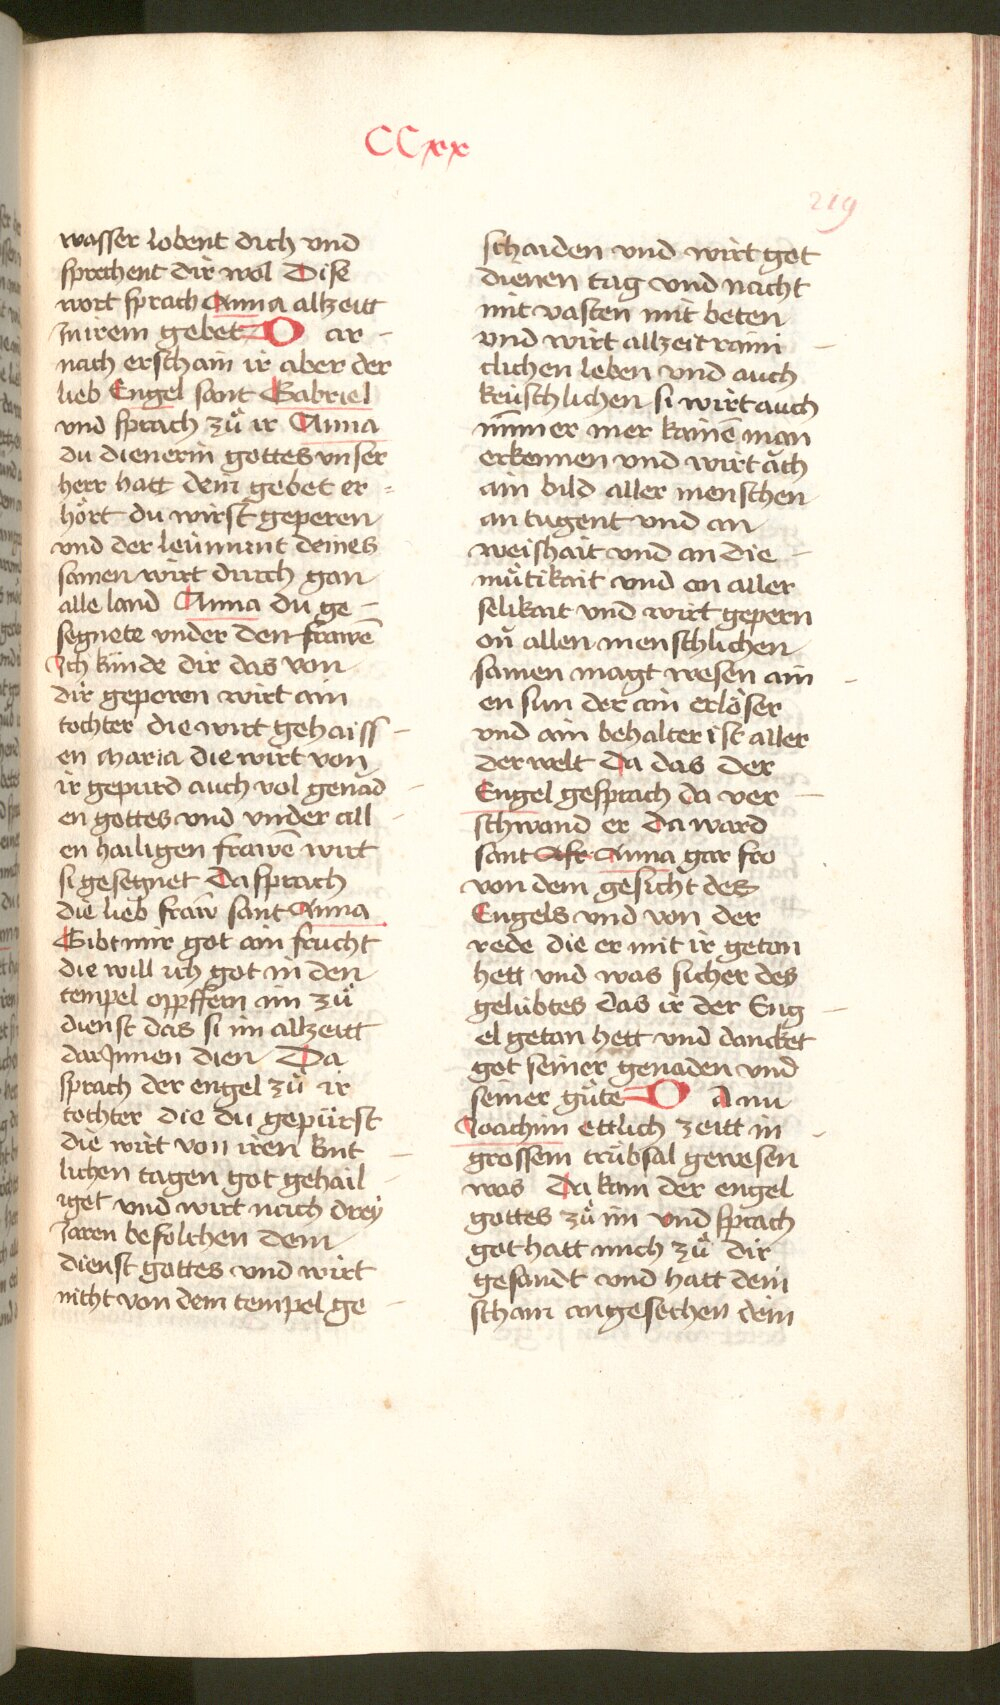 CCxx
219
wasser lobent dich vnd
sprechent dir wol Dise
wort sprach Anna allzeitt
zu irem gebet D ar
nach erschain ir aber der
lieb Engel sant Gabriel
vnd sprach zů ir Anna
du dienerin gottes vnser
herr hatt dein gebet er
hört du wirst geperen
vnd der leümunt deines
samen wirt durch gan
alle land Anna du ge
segnete vnder den frawē
Ich künde dir das von
dir geporen wirt ain
tochter die wirt gehaiss
en Maria die wirt von
ir gepurd auch vol genad
en gottes vnd vnder all
en hailigen frawē wirt
si gesegnet Da sprach
die lieb fraw sant Anna
Gibt mir got ain frucht
die will ich got in den
tempel opffern im zů
dienst das si im allzeitt
dar Innen dien Da
sprach der engel zů ir
tochter die du gepürst
die wirt von iren kint
lichen tagen got gehail
iget vnd wirt nach drey
Jaren befolchen dem
dienst gottes vnd wirt
nicht von dem tempel ge
schaiden vnd wirt got
dienen tag vnd nacht
mit vasten mit beten
vnd wirt allzeit raini
clichen leben vnd auch
keüschlichen si wirt auch
nimmer mer kainē man
erkennen vnd wirt ăch
ain bild aller menschen
an tugent vnd an
weishait vnd an die
mütikait vnd an aller
selikait vnd wirt gepern
on allen menschlichen
samen magt wesen ain
en sun der ain erlöser
vnd ain behalter ist aller
der welt Da das der
Engel gesprach da ver
schwand er Da ward
sant Anna gar fro
von dem gesicht des
Engels vnd von der
rede die er mit ir getan
hett vnd was sicher des
gelübtes das ir der Eng
el getan hett vnd dancket
got seiner genaden vnd
seiner güte D A nu
Joachim ettlich zeitt in
grossem trübsal gewesen
was Da kam der engel
gottes zů im vnd sprach
got hatt mich zů dir
gesandt vnd hatt dein
scham angesechen dein